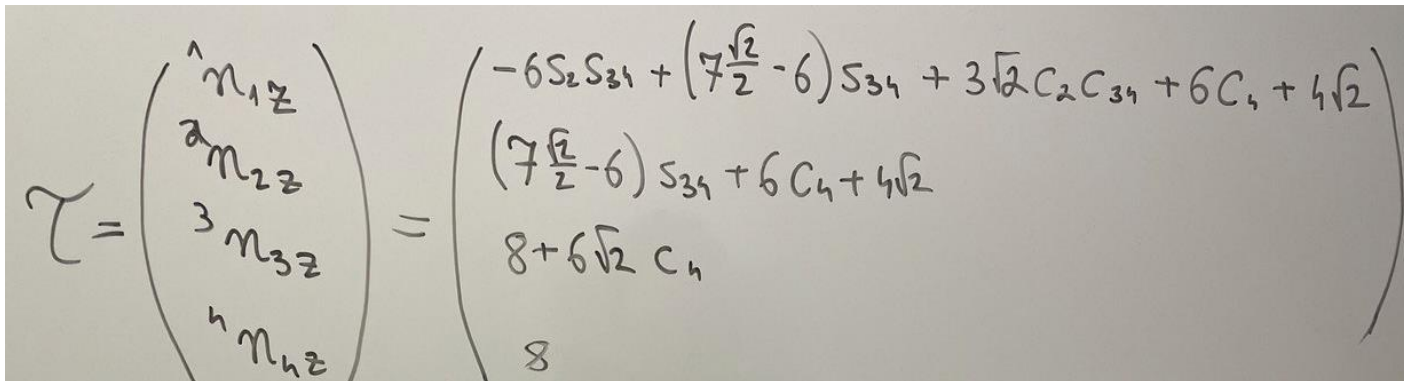 τ = (¹n₁z ²n₂z ³n₃z ⁴n₄z) = (-6S₂S₃₄ + (7 √2/2 - 6) S₃₄ + 3√2 C₂C₃₄ + 6C₄ + 4√2
(7 √2/2 - 6) S₃₄ + 6C₄ + 4√2
8 + 6√2 C₄
8)